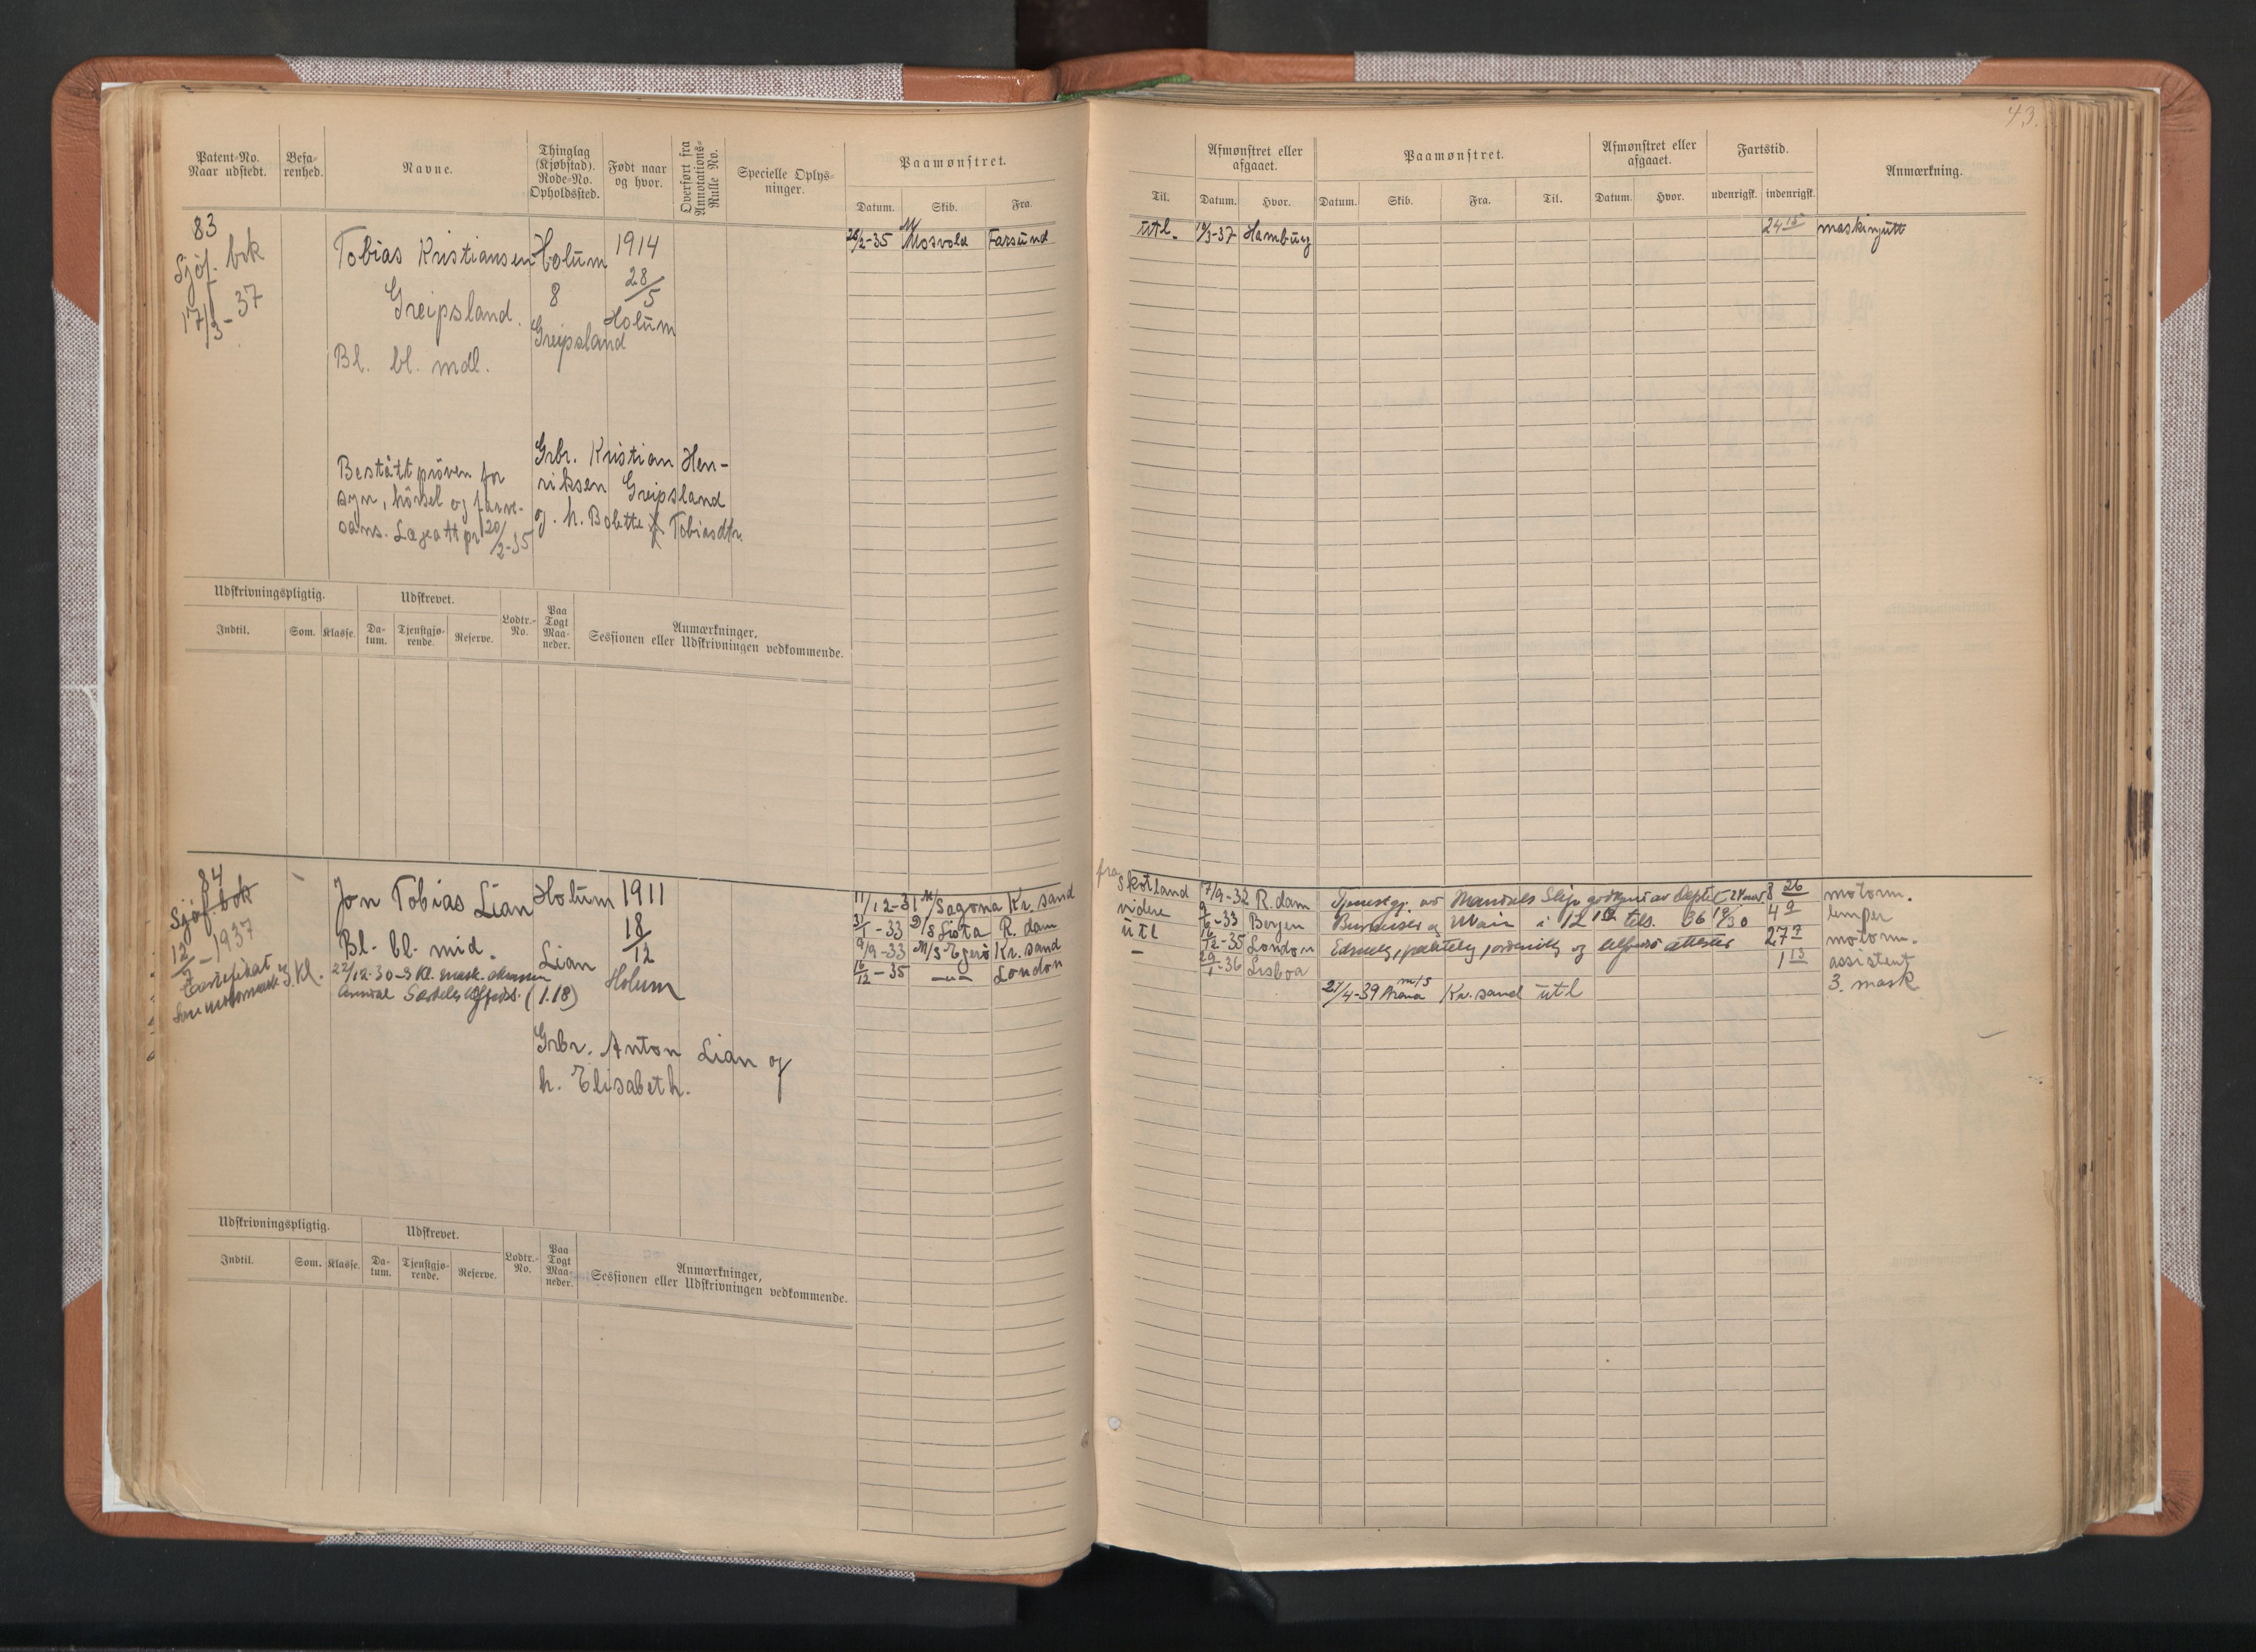 43.
Patent-No. Naar udstedt.
Befarenhed.
Navne.
Thinglag (Kjøbstad). Rode-No. Opholdssted.
Født naar og hvor.
Overført fra Annotations-Rulle No.
Specielle Oplysninger.
Paamønstret.
Datum. Skib. Fra.
Til.
Afmønstret eller afgaaet.
Datum. Hvor.
Paamønstret.
Datum. Skib. Fra. Til.
Afmønstret eller afgaaet.
Datum. Hvor.
Fartstid.
udenrigsk. indenrigsk.
Anmærkning.
83
Sjøf. bok
17/3-37
Tobias Kristiansen
Greipsland.
Bl. bl. mdl.
Holum
8
Greipsland
1914
28/5
Holum
Bestått prøven for
syn, hørsel og farve-
sans. Lægeatt
20/2-35
Grbr. Kristian Hen-
riksen Greipsland
og h. Bolette Tobiasdtr.
/2-35 M Mosvold Farsund
utl. /3-37 Hamburg 24 15 maskingutt
Udskrivningspligtig.
Udskrevet.
Indtil. Som. Klasse. Datum. Tjenstgjørende. Reserve. Lodtr.-No. Paa Togt Maaneder.
Anmærkninger,
Sessionen eller Udskrivningen vedkommende.
84
Sjøf. bok
12/7-1937
3 Kl.
Jon Tobias Lian
Bl. bl. mid.
22/12-30-3 Kl. mask.
(1.18)
Holum
Lian
1911
18/12
Holum
Grbr. Anton Lian og
h. Elisabeth.
11/12-31 M/S Sagona Kr. sand
31/1-33 D/S Lista R. dam
9/9-33 M/S Egerø Kr. sand
16/12-35 -"- London
fra Skotland 7/9-32 R. dam Tjenestgj. av Mandals Slip godkjent av Dept. 8 26 motorm.
videre /6-33 Bergen Burmeister & Wain i 12 4 9 lemper
utl 16/12-35 London 27 7 motorm.
- 29/1-36 Lisboa 1 13 assistent
27/4-39 m/s Kr. sand utl 3. mask
Udskrivningspligtig.
Udskrevet.
Indtil. Som. Klasse. Datum. Tjenstgjørende. Reserve. Lodtr.-No. Paa Togt Maaneder.
Anmærkninger,
Sessionen eller Udskrivningen vedkommende.